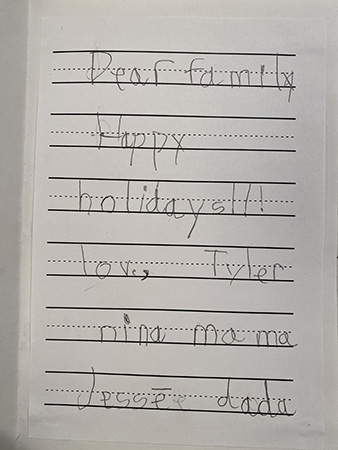 Dear family
Happy
holidays!!!
love, Tyler
nina mama
Jessee dada